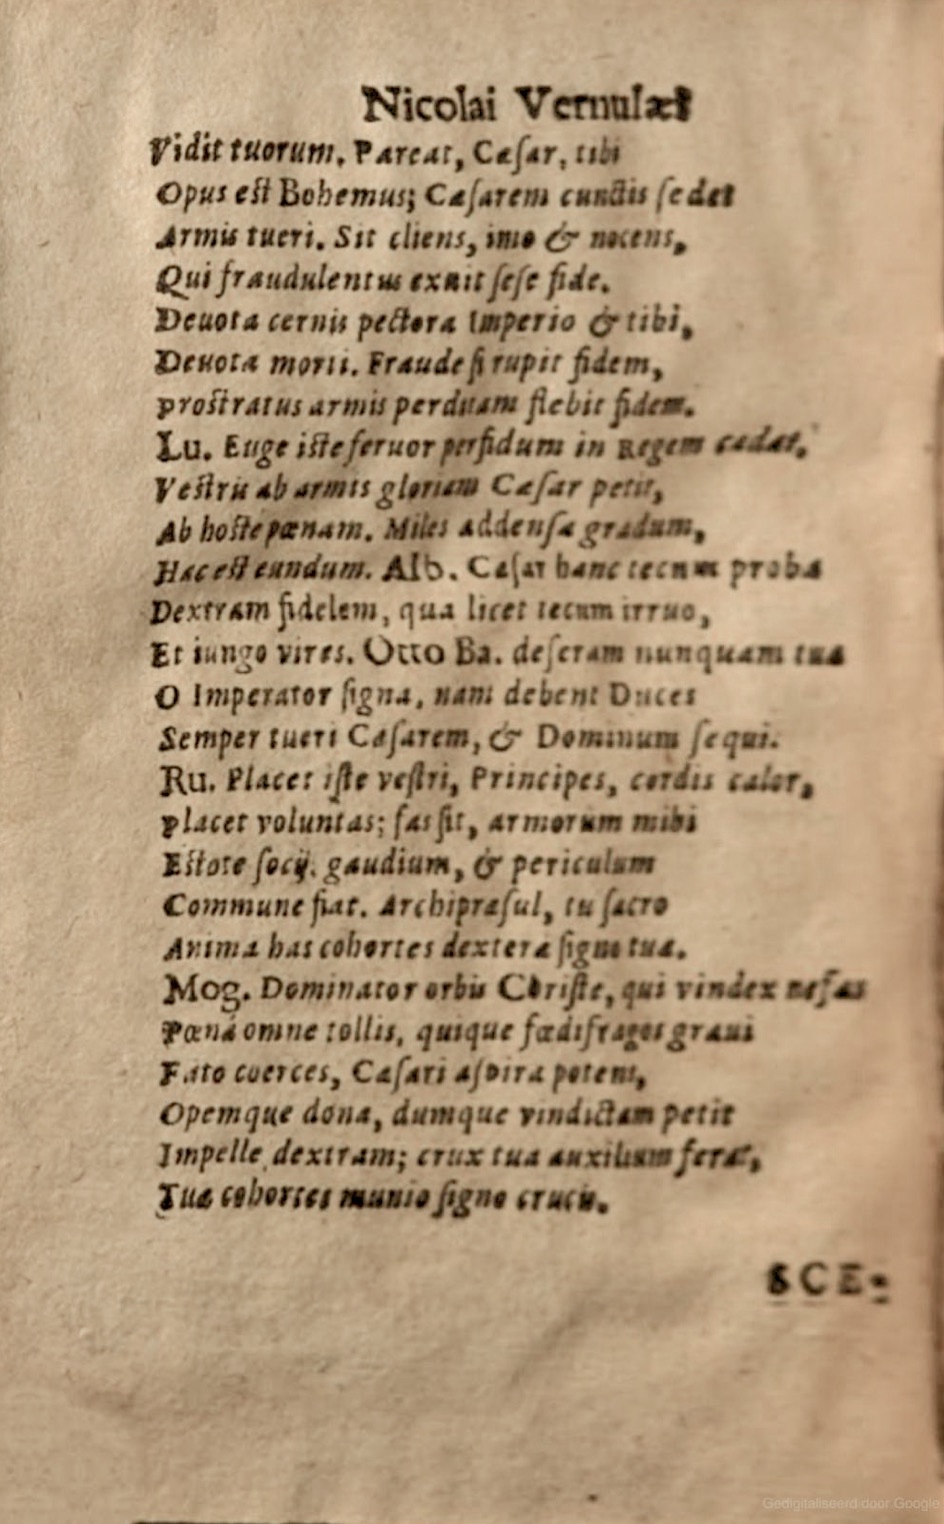 Nicolai Vernulæi
Vidit tuorum. Pareat, Cæsar, tibi
Opus est Bohemus; Cæsarem cunctis se det
Armis tueri. Sit cliens, imo & nocens,
Qui fraudulentus exuit sese fide.
Deuota cernis pectora Imperio & tibi,
Deuota morti. Fraude si rupit fidem,
prostratus armis perditam flebit fidem.
Lu. Euge iste feruor perfidum in Regem cadat,
Vestris ab armis gloriam Cæsar petit,
Ab hoste pœnam. Miles addensa gradum,
Hac est eundum. Alb. Cæsar hanc tecum proba
Dextram fidelem, qua licet tecum irruo,
Et iungo vires. Otto Ba. deseram nunquam tua
O Imperator signa, nam debent Duces
Semper tueri Cæsarem, & Dominum sequi.
Ru. Placet iste vestri, Principes, cordis calor,
placet voluntas; fas sit, armorum mihi
Estote socij. gaudium, & periculum
Commune fiat. Archipræsul, tu sacro
Anima has cohortes dexteræ signo tuæ.
Mog. Dominator orbis Christe, qui vindex nefas
Pœnâ omne tollis, quique fœdifragos graui
Fato coerces, Cæsari aspira potens,
Opemque dona, dumque vindictam petit
Impelle dextram; crux tua auxilium ferat,
Tuas cohortes munio signo crucis.
SCE-
Gedigitaliseerd door Google